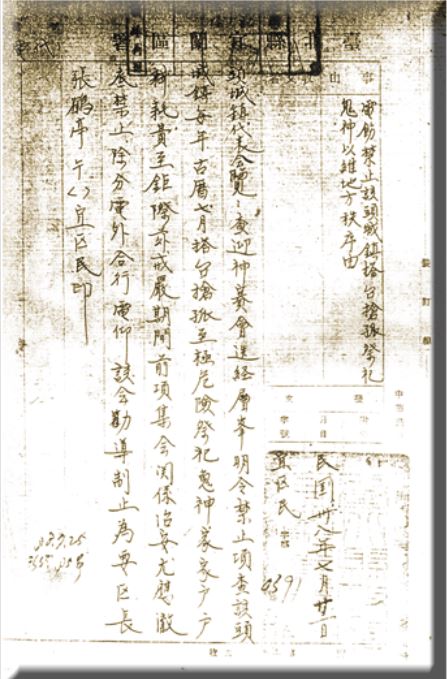 臺北縣宜蘭區署代電
事由
電飭禁止該頭城鎮搭台搶孤祭祀
鬼神以維地方秩序由
民国卅八年七月廿一日
宜区民字第
4391
頭城鎮代表会覽:查迎神賽會迭経層峯明令禁止項查該頭
城鎮每年古曆七月搭台搶孤至極危險祭祀鬼神家家户户
耗費至鉅際茲戒嚴期間前項集会関係治安尤應澈
底禁止除分電外合行電仰該会勸導制止為要区長
張鵬亭午()宜区民印
38.7.25